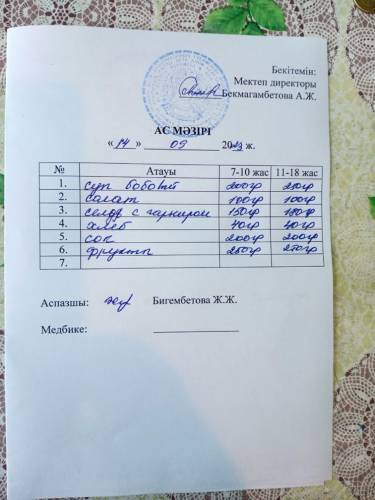 Бекітемін:
Мектеп директоры
Бекмагамбетова А.Ж.
АС МӘЗІРІ
« 14 » 09 2023 ж.
№ Атауы 7-10 жас 11-18 жас
1. суп бобовый 200гр
2. салат 100гр 100гр
3. с гарниром 150гр 180гр
4. хлеб 40гр 40гр
5. сок 200гр 200гр
6. фрукты
7.
Аспазшы: Бигембетова Ж.Ж.
Медбике: